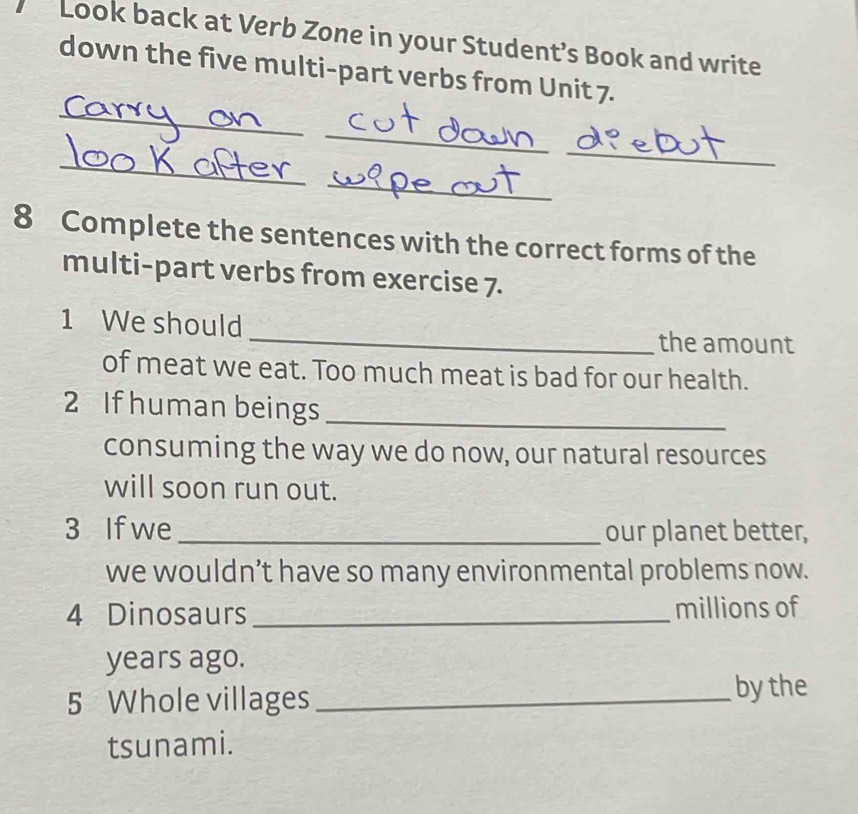 7 Look back at Verb Zone in your Student's Book and write
down the five multi-part verbs from Unit 7.
carry on cut down die out
look after wipe out
8 Complete the sentences with the correct forms of the
multi-part verbs from exercise 7.
1 We should the amount
of meat we eat. Too much meat is bad for our health.
2 If human beings
consuming the way we do now, our natural resources
will soon run out.
3 If we our planet better,
we wouldn't have so many environmental problems now.
4 Dinosaurs millions of
years ago.
5 Whole villages by the
tsunami.